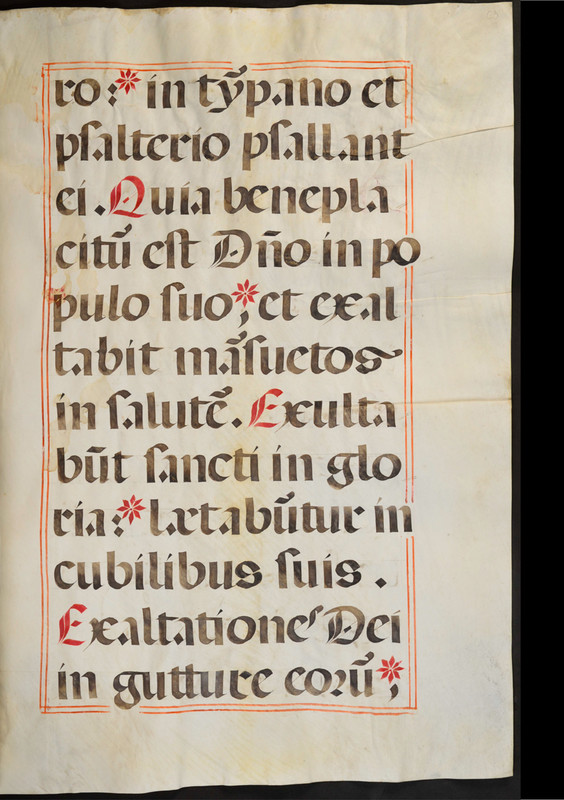 ro:* in tỹpano et
pſalterio pſallant
ei. Quia benepla
citũ eſt Dño in po
pulo ſuo;* et exal
tabit mãſuetos
in ſalutẽ. Exulta
bũt ſancti in glo
ria:* lætabũtur in
cubilibus ſuis.
Exaltationes Dei
in gutture eoꝛũ;*